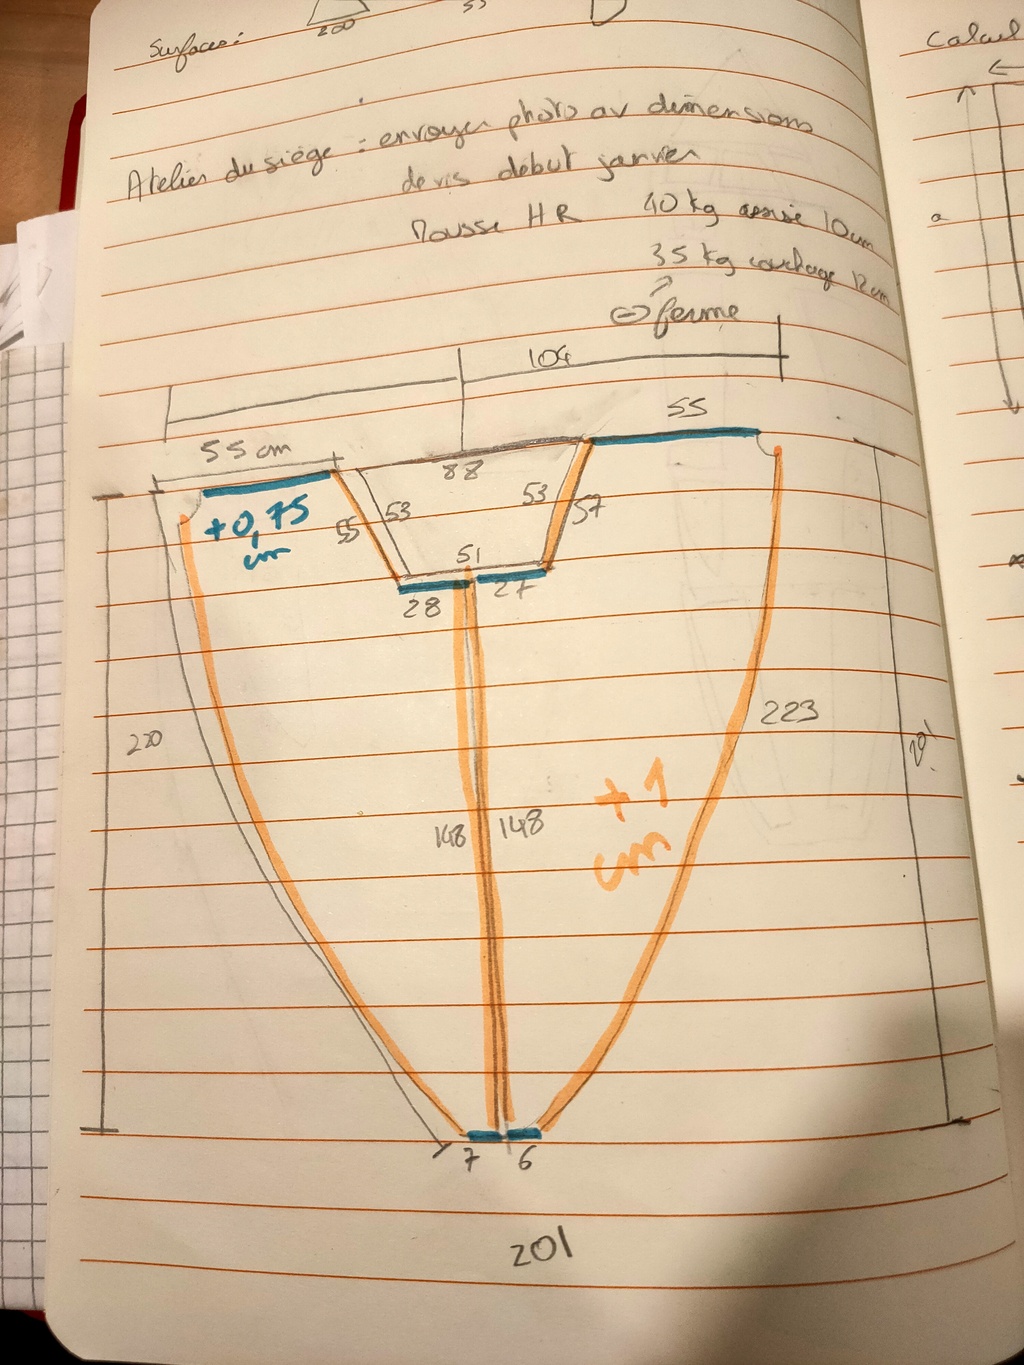 200
Surfaces:
Calcul
Atelier du siège : envoyer photo av dimensions
devis début janvier
Mousse HR 40 kg assise 10cm
35 kg couchage 12cm
ferme
a
104
55 cm
55
88
+0,75
cm
55
53
53
57
51
28
27
220
223
201
148
148
+1
cm
7
6
201